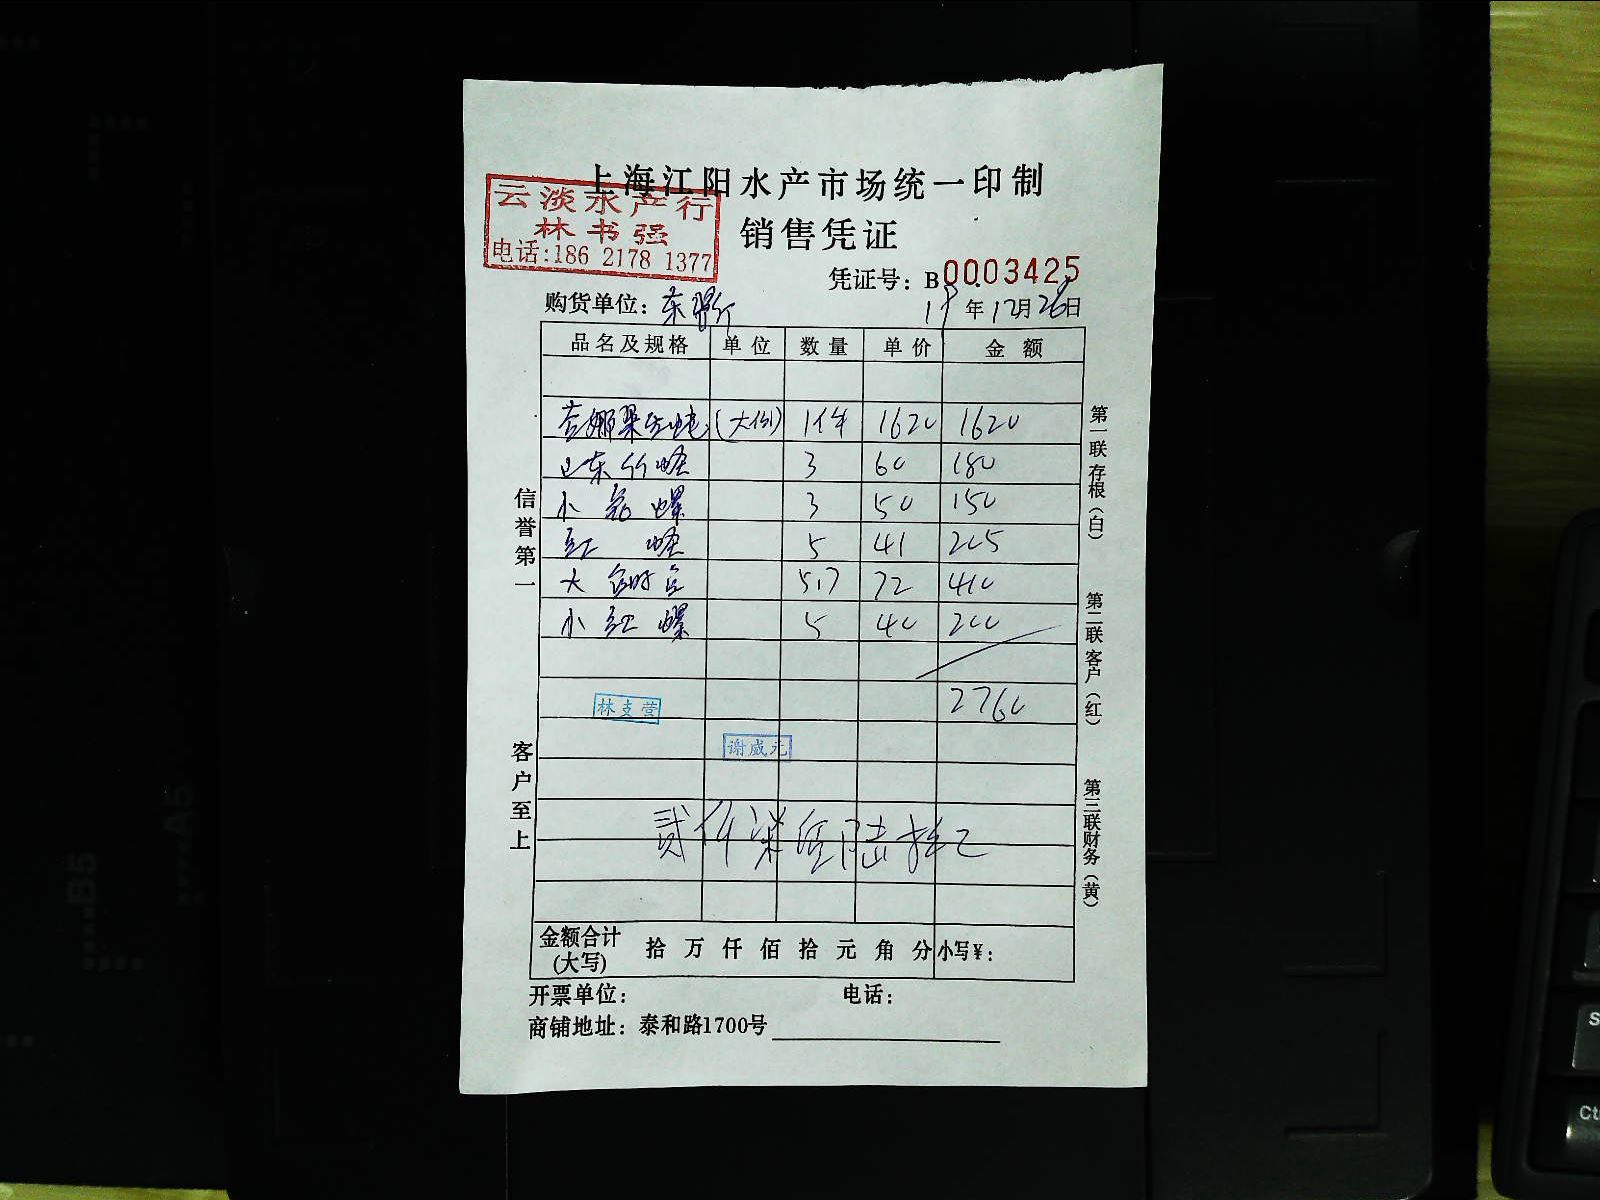 上海江阳水产市场统一印制
云淡水产行
林书强
电话:186 2178 1377
销售凭证
凭证号: B0003425
购货单位:
19年12月26日
品名及规格 单位 数量 单价 金额
吉娜朵生蚝 (大份) 1件 1620 1620
山东竹蛏 3 60 180
小花螺 3 50 150
红蛏 5 41 205
大 5.7 72 410
小红螺 5 40 200
2760
林支营
谢威元
贰仟柒佰陆拾元
金额合计(大写) 拾万仟佰拾元角分 小写¥:
开票单位: 电话:
商铺地址: 泰和路1700号
信誉第一
客户至上
第一联 存根(白)
第二联 客户(红)
第三联 财务(黄)
B5
A5
S
Ct